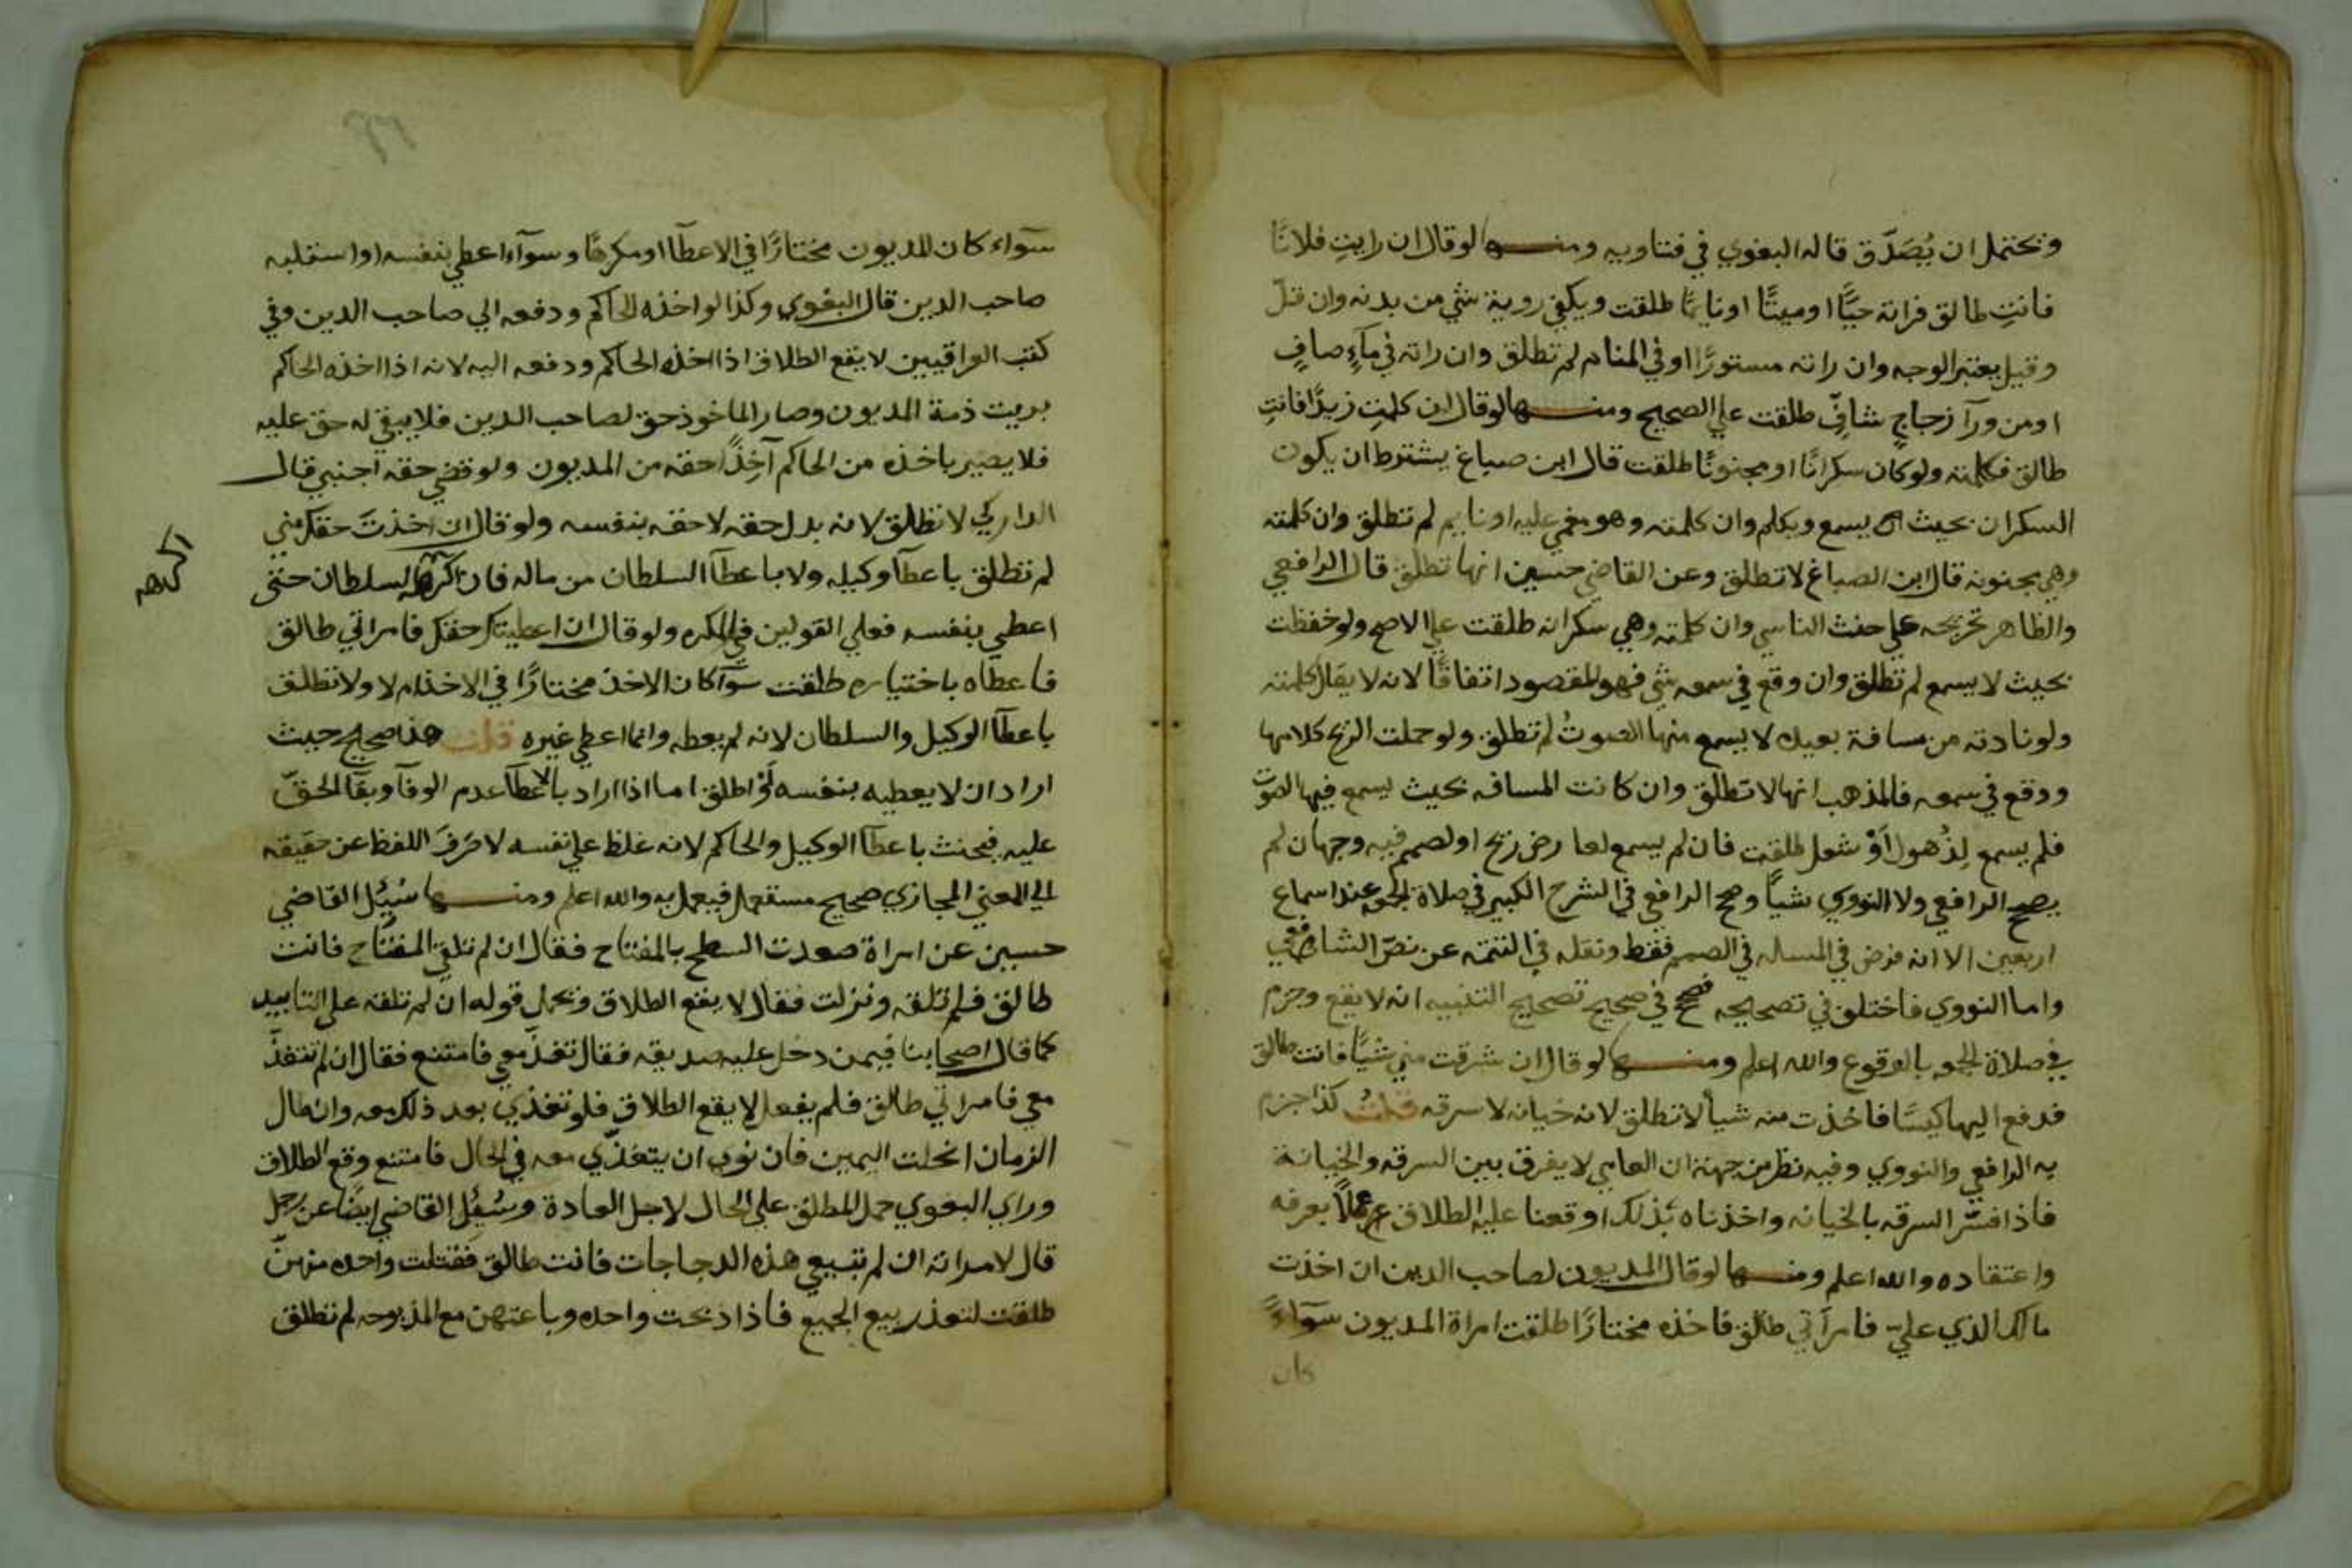 ونحتمل ان يُصَدَّق قاله البغوي في فتاويه ومنها لو قال ان رايتِ فلانًا
فانتِ طالق فراته حيًّا او ميتًا او نايمًا طلقت ويكفي روية شي من بدنه وان قلّ
وقيل يعتبر الوجه وان راته مستورًا او في المنام لم تطلق وان راته في مآءٍ صافٍ
او من ورآ زجاجٍ شافٍّ طلقت علي الصحيح ومنها لو قال ان كلمتِ زيدًا فانتِ
طالق فكلمته ولو كان سكرانًا او مجنونًا طلقت قال ابن صباغ يشترط ان يكون
السكران بحيث يسمع ويكلم وان كلمته وهو مغمي عليه او نايم لم تطلق وان كلمته
وهي مجنونه قال ابن الصباغ لا تطلق وعن القاضي حسين انها تطلق قال الرافعي
والظاهر تخريجه علي حنث الناسي وان كلمته وهي سكرانه طلقت علي الاصح ولو خفظت
بحيث لا يسمع لم تطلق وان وقع في سمعه شي فهو المقصود اتفاقًا لانه لا يقال كلمته
ولو نادته من مسافة بعيده لا يسمع منها الصوتُ لم تطلق ولو حملت الريح كلامها
ووقع في سمعه فالمذهب انها لا تطلق وان كانت المسافه بحيث يسمع فيها الصوت
فلم يسمع لِذُهولٍ اَوْ شغل طلقت فان لم يسمع لعارض ريح او لصمم فيه وجهان لم
يصحح الرافعي ولا النووي شيأ وصحح الرافعي في الشرح الكبير في صلاة الجمعه عند اسماع
اربعين الا انه فرض في المساله في الصمم فقط ونقله في التتمه عن نصّ الشافعي
واما النووي فاختلف في تصحيحه فصحح في صحيح تصحيح التنبيه انه لا يقع وجزم
في صلاة الجمعه بالوقوع والله اعلم ومنها لو قال ان شرقت مني شيًّا فانت طالق
فدفع اليها كيسًا فاخذت منه شيأ لا تطلق لانه خيانه لا سرقه قلتُ كذا جزم
به الرافعي والنووي وفيه نظر من جهة ان العامي لا يفرق بين السرقه والخيانة
فاذا فسّر السرقه بالخيانه واخذناه بذلك اوقعنا عليه الطلاق عملًا بعرفه
واعتقاده والله اعلم ومنها لو قال المديون لصاحب الدين ان اخذت
مالك الذي عليّ فامرأتي طالق فاخذه مختارًا طلقت امراة المديون سوآءً
كان
سوآء كان المديون مختارًا في الاعطآ او مكرهًا وسوآء اعطي بنفسه او استلبه
صاحب الدين قال البغوي وكذا لو اخذه الحاكم ودفعه الي صاحب الدين وفي
كتب العراقيين لا يقع الطلاق اذا اخذه الحاكم ودفعه اليه لانه اذا اخذه الحاكم
بريت ذمة المديون وصار الماخوذ حق لصاحب الدين فلا يبقي له حق عليه
فلا يصير باخذه من الحاكم آخِذًا حقه من المديون ولو قضي حقه اجنبي قال
الداركي لا تطلق لانه بدل حقه لا حقه بنفسه ولو قال ان اخذتَ حقك مني
لم تطلق باعطآ وكيله ولا باعطآ السلطان من ماله فان اكرهه السلطان حتي
اكرهه
اعطي بنفسه فعلي القولين في المكره ولو قال ان اعطيتك حقك فامراتي طالق
فاعطاه باختياره طلقت سوآ كان الاخذ مختارًا في الاخذ ام لا ولا تطلق
باعطآ الوكيل والسلطان لانه لم يعطه وانما اعطي غيره قلت هذا صحيح حيث
اراد ان لا يعطيه بنفسه اَوْ اطلق اما اذا اراد بالاعطآ عدم الوفآ وبقآ الحقّ
عليه فيحنث باعطآ الوكيل والحاكم لانه غلظ علي نفسه لا صَرَفَ اللفظ عن حقيقه
الي المعني المجازي صحيح مستعمل فيعمل به والله اعلم ومنها سُئِل القاضي
حسين عن امراة صعدت السطح بالمفتاح فقال ان لم تلق المفتاح فانت
طالق فلم تلقه ونزلت فقال لا يقع الطلاق ونحمل قوله ان لم تلقه علي التابيد
كما قال اصحابنا فيمن دخل عليه صديقه فقال تغدَّ معي فامتنع فقال ان لم تتغدَّ
معي فامراتي طالق فلم يفعل لا يقع الطلاق فلو تغذي بعد ذلك معه وان طال
الزمان انحلت اليمين فان نوي ان يتغذّي معه في الحال فامتنع وقع الطلاق
وراي البغوي حمل المطلق علي الحال لاجل العادة وسُئِل القاضي ايضًا عن رجل
قال لامراته ان لم تبيعي هذه الدجاجات فانت طالق فقتلت واحده منهنّ
طلقت لتعذر بيع الجميع فاذا ذبحت واحده وباعتهن مع المذبوحه لم تطلق